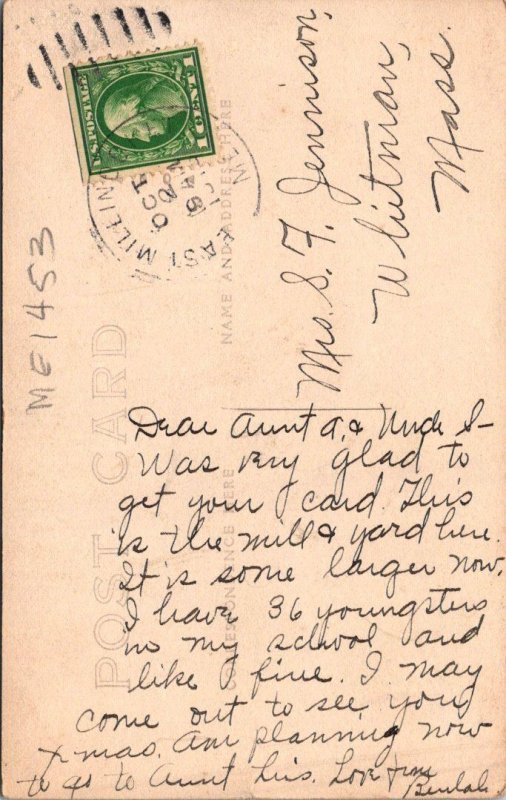 U.S. POSTAGE
1 CENT 1
EAST MILLIN
OCT
20
ME1453
POST CARD
NAME AND ADDRESS HERE
CORRESPONDENCE HERE
Mrs. S. F. Jennison,
Whitman,
Mass.
Dear Aunt A. & Uncle S-
Was very glad to
get your card. This
is the mill & yard here.
It is some larger now.
I have 36 youngsters
in my school and
like fine. I may
come out to see you
Xmas. Am planning now
to go to Aunt Lis. Love from
Beulah